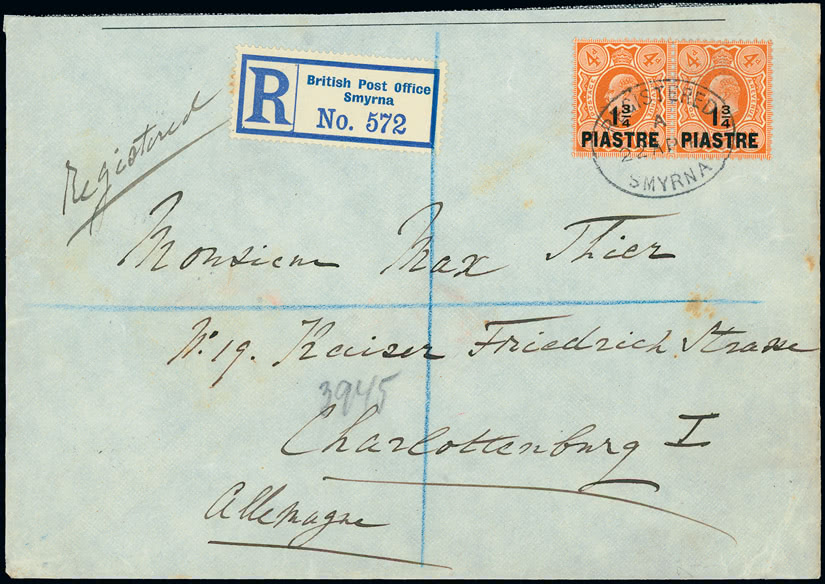 R
British Post Office
Smyrna
No. 572
4d 4d 4d 4d
1 3/4 1 3/4
PIASTRE PIASTRE
REGISTERED
A
22 AP
SMYRNA
Registered
Monsieur Max Thier
No. 19. Kaiser Friedrich Strasse
3945
Charlottenburg I
Allemagne